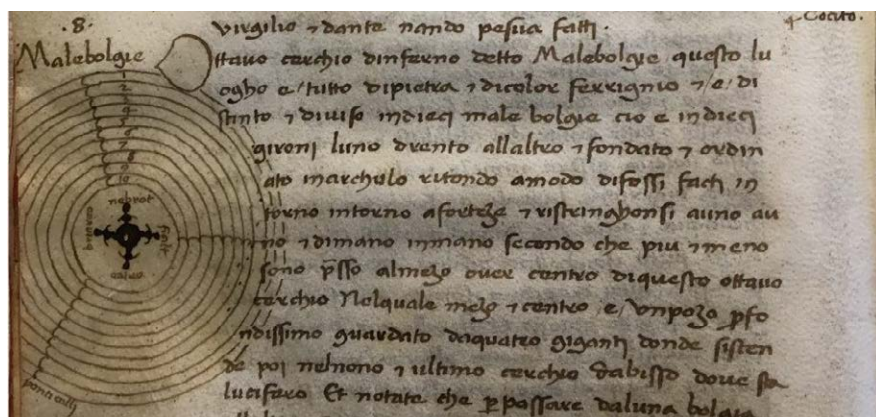 ·8·
Malebolgie
virgilio ⁊ dante nando pesua fatti·
Cocito·
Ottavo cerchio dinferno detto Malebolgie questo lu
ogho e/tutto dipietra ⁊ dicolor ferrignio ⁊/e/di
stinto ⁊ diviso indieci male bolgie cio e indieci
gironi luno drento allaltro ⁊ fondato ⁊ ordin
ato inarchulo ritondo amodo difossi facti in
torno intorno aforteze ⁊ ristringhonsi auno au
no ⁊ dimano inmano secondo che piu ⁊ meno
sono p̄sso almezo over centro diquesto ottavo
cerchio Nelquale mezo ⁊ centro e/ vnpozo ꝓfo
ndissimo guardato daquatro giganti donde siscen
de poi nelnono ⁊ ultimo cerchio dabisso dove sta
lucifero Et notate che ꝑpassare daluna bolgia
1
2
3
4
5
6
7
8
9
10
nebrot
fialt
briareo
ponticelli